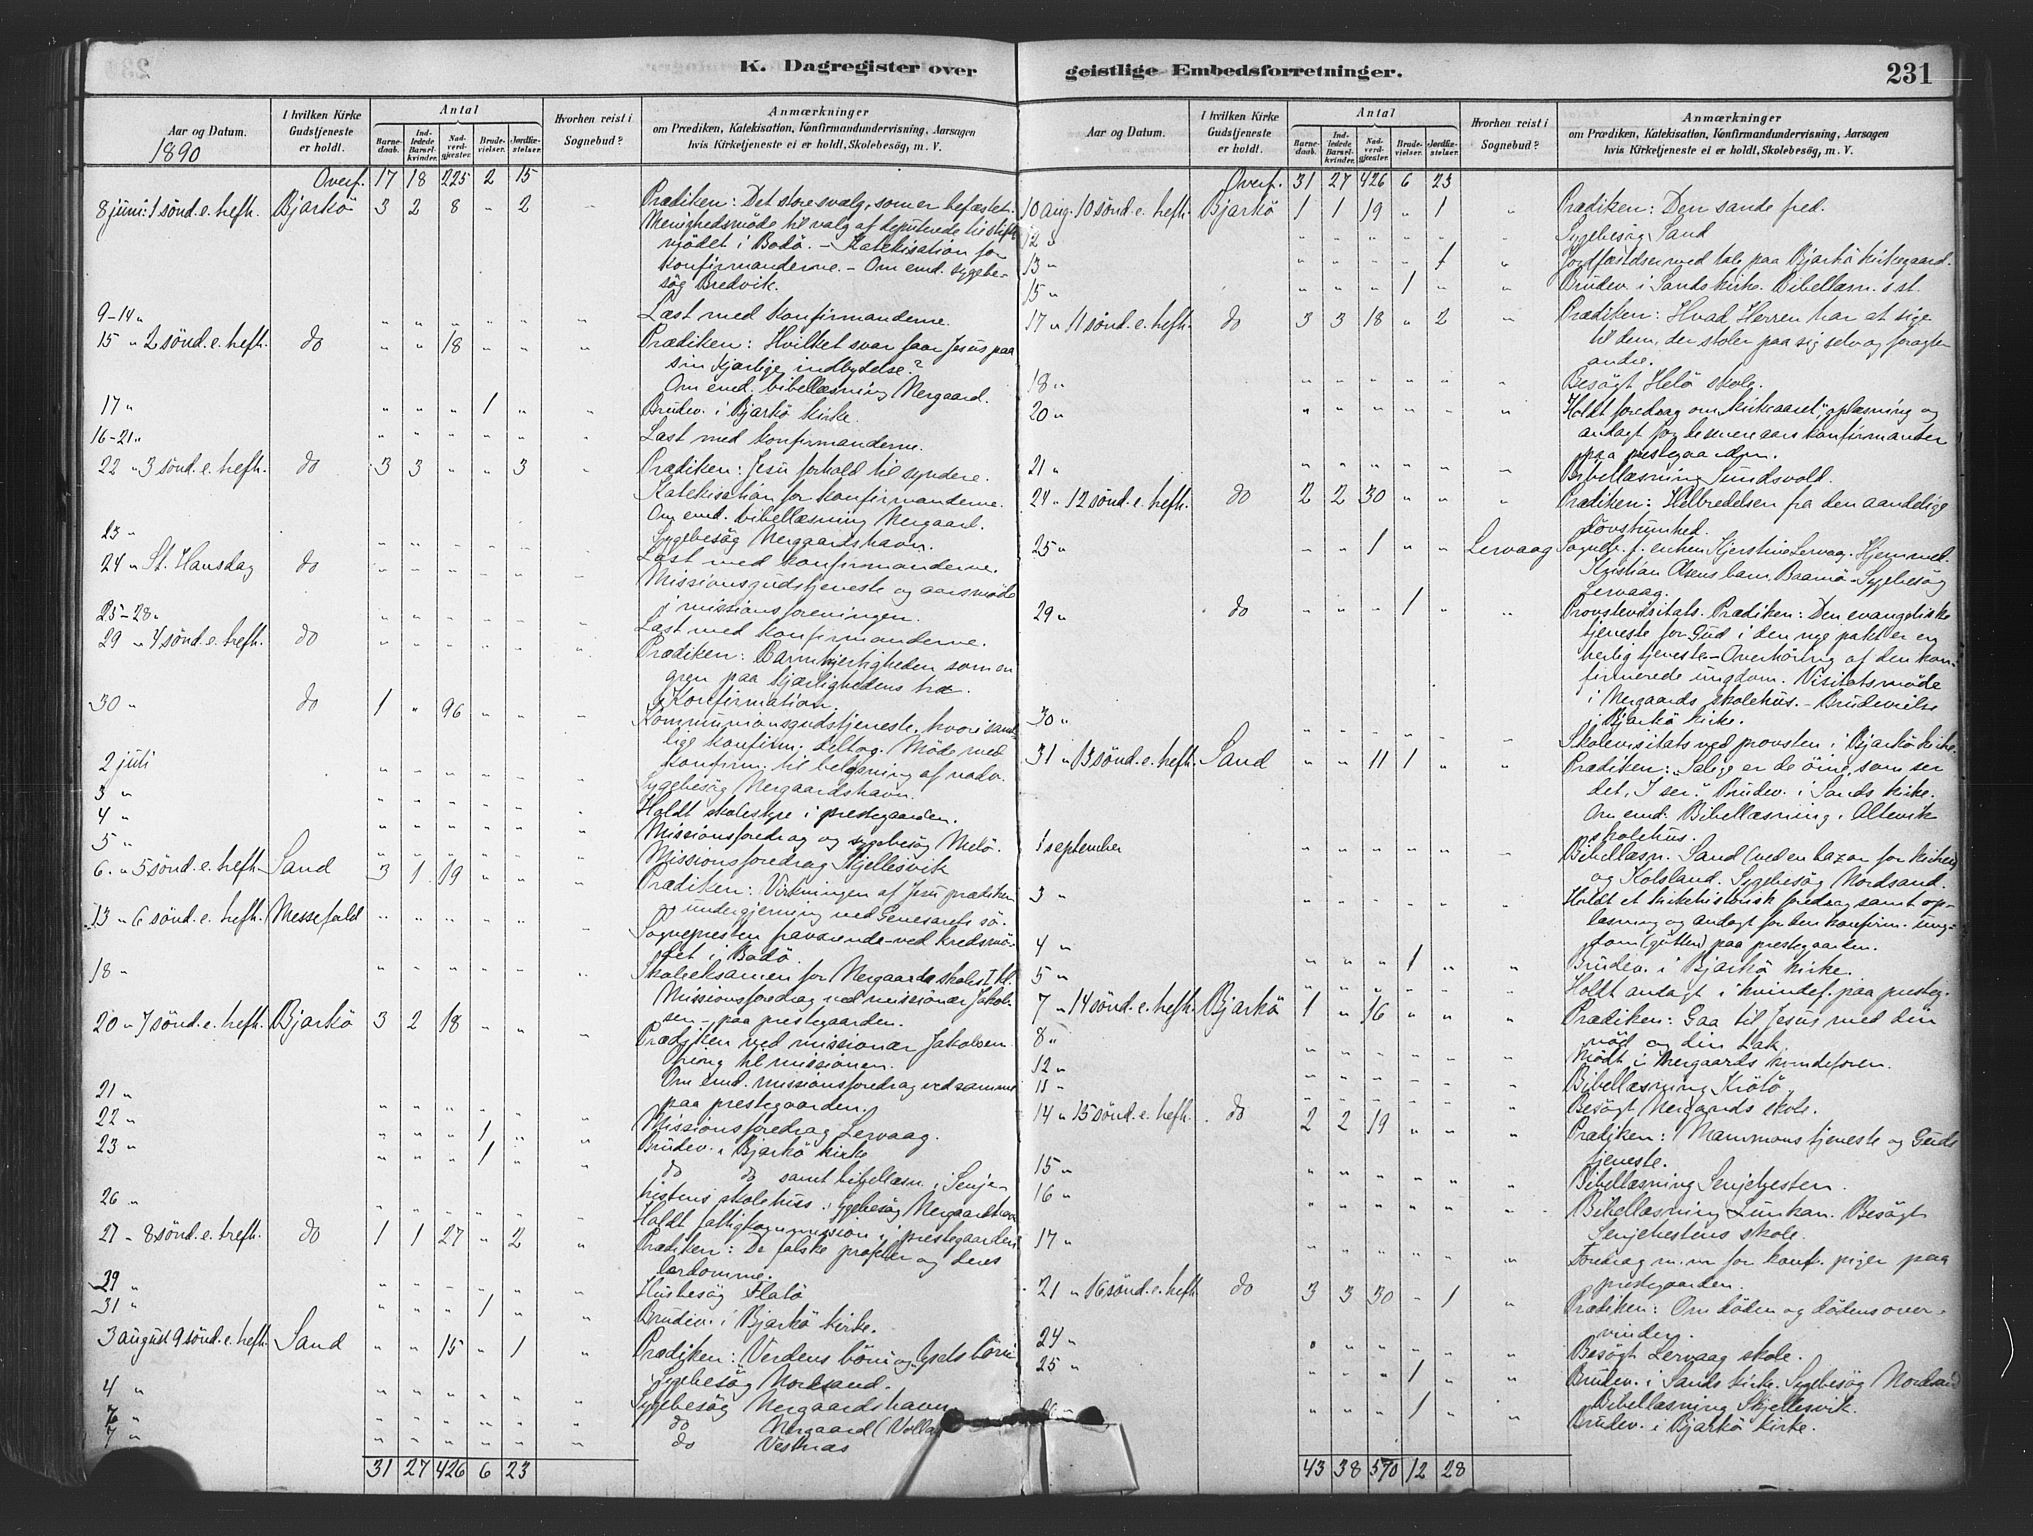 K. Dagregister over
Aar og Datum.
1890
I hvilken Kirke Gudstjeneste er holdt.
Antal
Barnedaab.
Indledede Barselkvinder.
Nadverdgjester.
Brudevielser.
Jordfæstelser.
Hvorhen reist i Sognebud?
Anmærkninger
om Prædiken, Katekisation, Konfirmandundervisning, Aarsagen
hvis Kirketjeneste ei er holdt, Skolebesøg, m. V.
Overf. 17 18 225 2 15
8 juni 1 sönd. e. trefh. Bjarkö 3 2 8 " 2 " Prædiken: Det store svælg, som er befæstet.
Menighedsmöde til valg af deputerede til stifts
mödet i Bodö. – Katekisation for
konfirmanderne. – Om emd. sygebe-
søg Bredvik.
9-14 " Læst med konfirmanderne.
15 " 2 sönd. e. trefh. do " " 18 " " Prædiken: Hvilket svar faar Jesus paa
sin kjærlige indbydelse?
Om emd. bibellæsning Nergaard.
17 " " " " 1 " " Brudev. i Bjarkö kirke.
16-21 " Læst med konfirmanderne.
22 " 3 sönd. e. trefh. do 3 3 " " 3 Prædiken: Jesu forhold til syndere.
Katekisation for konfirmanderne.
Om emd. bibellæsning Nergaard.
23 " Sygebesög Nergaardshavn.
Læst med konfirmanderne.
24 " St. Hansdag do Missionsgudstjeneste og aarsmöde
i missionsforeningen.
25-28 " Læst med konfirmanderne.
29 " 4 sönd. e. trefh. do Prædiken: Barmhjertigheden som en
gren paa kjærlighedens træ.
Konfirmation.
30 " do 1 " 96 " " Kommunionsgudstjeneste, hvori samt-
lige konfirm. deltog. Möde med
konfirm. til belæsning af nadv.
2 juli Sygebesög Nergaardshavn.
3 " Holdt skolestyre i prestegaarden.
4 " Missionsforedrag og sygebesøg Metö.
5 " Missionsforedrag Skjellesvik
6. " 5 sönd. e. trefh. Sand 3 1 19 " " Prædiken: Virkningen af Jesu prædiken
og undergjerning ved Genesarets sö.
13 " 6 sönd. e. trefh. Messefald Sognepresten fraværende ved kredsmö-
det i Bodö.
18 " Skoleeksamen for Nergaards skoles I. kl.
Missionsforedrag ved missionær Jakob-
sen – paa prestegaarden.
20 " 7 sönd. e. trefh. Bjarkö 3 2 18 " " Prædiken ved missionær Jakobsen
Offring til missionen.
Om emd. missionsforedrag ved samme
paa prestegaarden.
21 " Missionsforedrag Lervaag.
22 " 1 Brudev. i Bjarkö kirke
23 " 1 do do samt bibellæsn. i Senje-
hestens skolehus.
26 " Holdt fattigkommission i prestegaarden
27 " 8 sönd. e. trefh. do 1 1 27 " 2 Prædiken: De falske profeter og deres
lærdomme.
29 " Husbesög Flatö
31 " 1 Brudev. i Bjarkö kirke.
3 august 9 sönd. e. trefh. Sand " " 15 " 1 " Prædiken: Verdens börn og lysets börn
Sygebesög Nordsand.
4 " Sygebesög Nergaardshavn
6 " do Nergaard (Volla)
7 " do Vestnæs
31 27 426 6 23
geistlige Embedsforretninger.
231
Aar og Datum.
I hvilken Kirke Gudstjeneste er holdt.
Antal
Barnedaab.
Indledede Barselkvinder.
Nadverdgjester.
Brudevielser.
Jordfæstelser.
Hvorhen reist i Sognebud?
Anmærkninger
om Prædiken, Katekisation, Konfirmandundervisning, Aarsagen
hvis Kirketjeneste ei er holdt, Skolebesøg, m. V.
Overf. 31 27 426 6 23
10 Aug. 10 sönd. e. trefh. Bjarkö 1 1 19 " 1 " Prædiken: Den sande fred.
12 " Sygebesög Sand
13 " 1 " Jordfæstelser med tale paa Bjarkö kirkegaard.
15 " 1 Brudev. i Sands kirke. Bibellæsn. s. st.
17 " 11 sönd. e. trefh. do 3 3 18 " 2 " Prædiken: Hvad Herren har at sige
til dem, der stoler paa sig selv og foragter
andre.
18 " Besögt Helö skole.
20 " Holdt foredrag om "kirkeaaret", oplæsning og
andagt for de senere aars konfirmanter
paa prestegaarden.
21 " Bibellæsning Sundsvold.
24 " 12 sönd. e. trefh. do 2 2 30 " " Prædiken: Helbredelsen fra den aandelige
dövstumhed.
25 " " " 1 " " Lervaag Sogneb. f. enken Kjerstine Lervaag. Hjemmed.
Kristian Olsens barn, Baamö – Sygebesög
Lervaag.
29 " do 1 Provstevisitats. Prædiken: Den evangeliske
tjeneste for Gud i den nye pakt er en
herlig tjeneste – Overhöring af den kon-
firmerede ungdom. Visitatsmöde
i Nergaards skolehus. – Brudevielse
i Bjarkö kirke.
30 " Skolevisitats ved provsten i Bjarkö kirke.
31 " 13 sönd. e. trefh. Sand " " 11 1 " Prædiken: "Salige er de öine, som ser
det, I ser." Brudev. i Sands kirke.
Om emd. Bibellæsning i Altevik
skolehus.
1 september Bibellæsn. Sand (ved en bazar for kirken)
og Kolsland. Sygebesög Nordsand.
3 " Holdt et kirkehistorisk foredrag samt op-
læsning og andagt for den konfirm. ung-
dom (gutter) paa prestegaarden.
4 " 1 Brudev. i Bjarkö kirke.
5 " Holdt andagt i kvindef. paa presteg.
7 " 14 sönd. e. trefh. Bjarkö 1 " 16 " " Prædiken: Gaa til Jesus med din
nöd og din tak.
8 " Mödt i Nergaards kvindeforen.
12 " Bibellæsning Krötö.
11 " Besögt Nergaards skole.
14 " 15 sönd. e. trefh. do 2 2 19 " " Prædiken: Mammons tjeneste og Guds
tjeneste.
15 " Bibellæsning Senjehesten.
16 " Bibellæsning Lunkan. Besögt
Senjehestens skole.
17 " Foredrag m. m. for konf. piger paa
prestegaarden.
21 " 16 sönd. e. trefh. do 3 3 30 " 1 " Prædiken: Om döden og dödens over-
vinder.
24 " Besögt Lervaag skole.
25 " 1 Brudev. i Sands kirke. Sygebesög Nordsand
Bibellæsning Skjellesvik.
1 Brudev. i Bjarkö kirke.
43 38 570 12 28